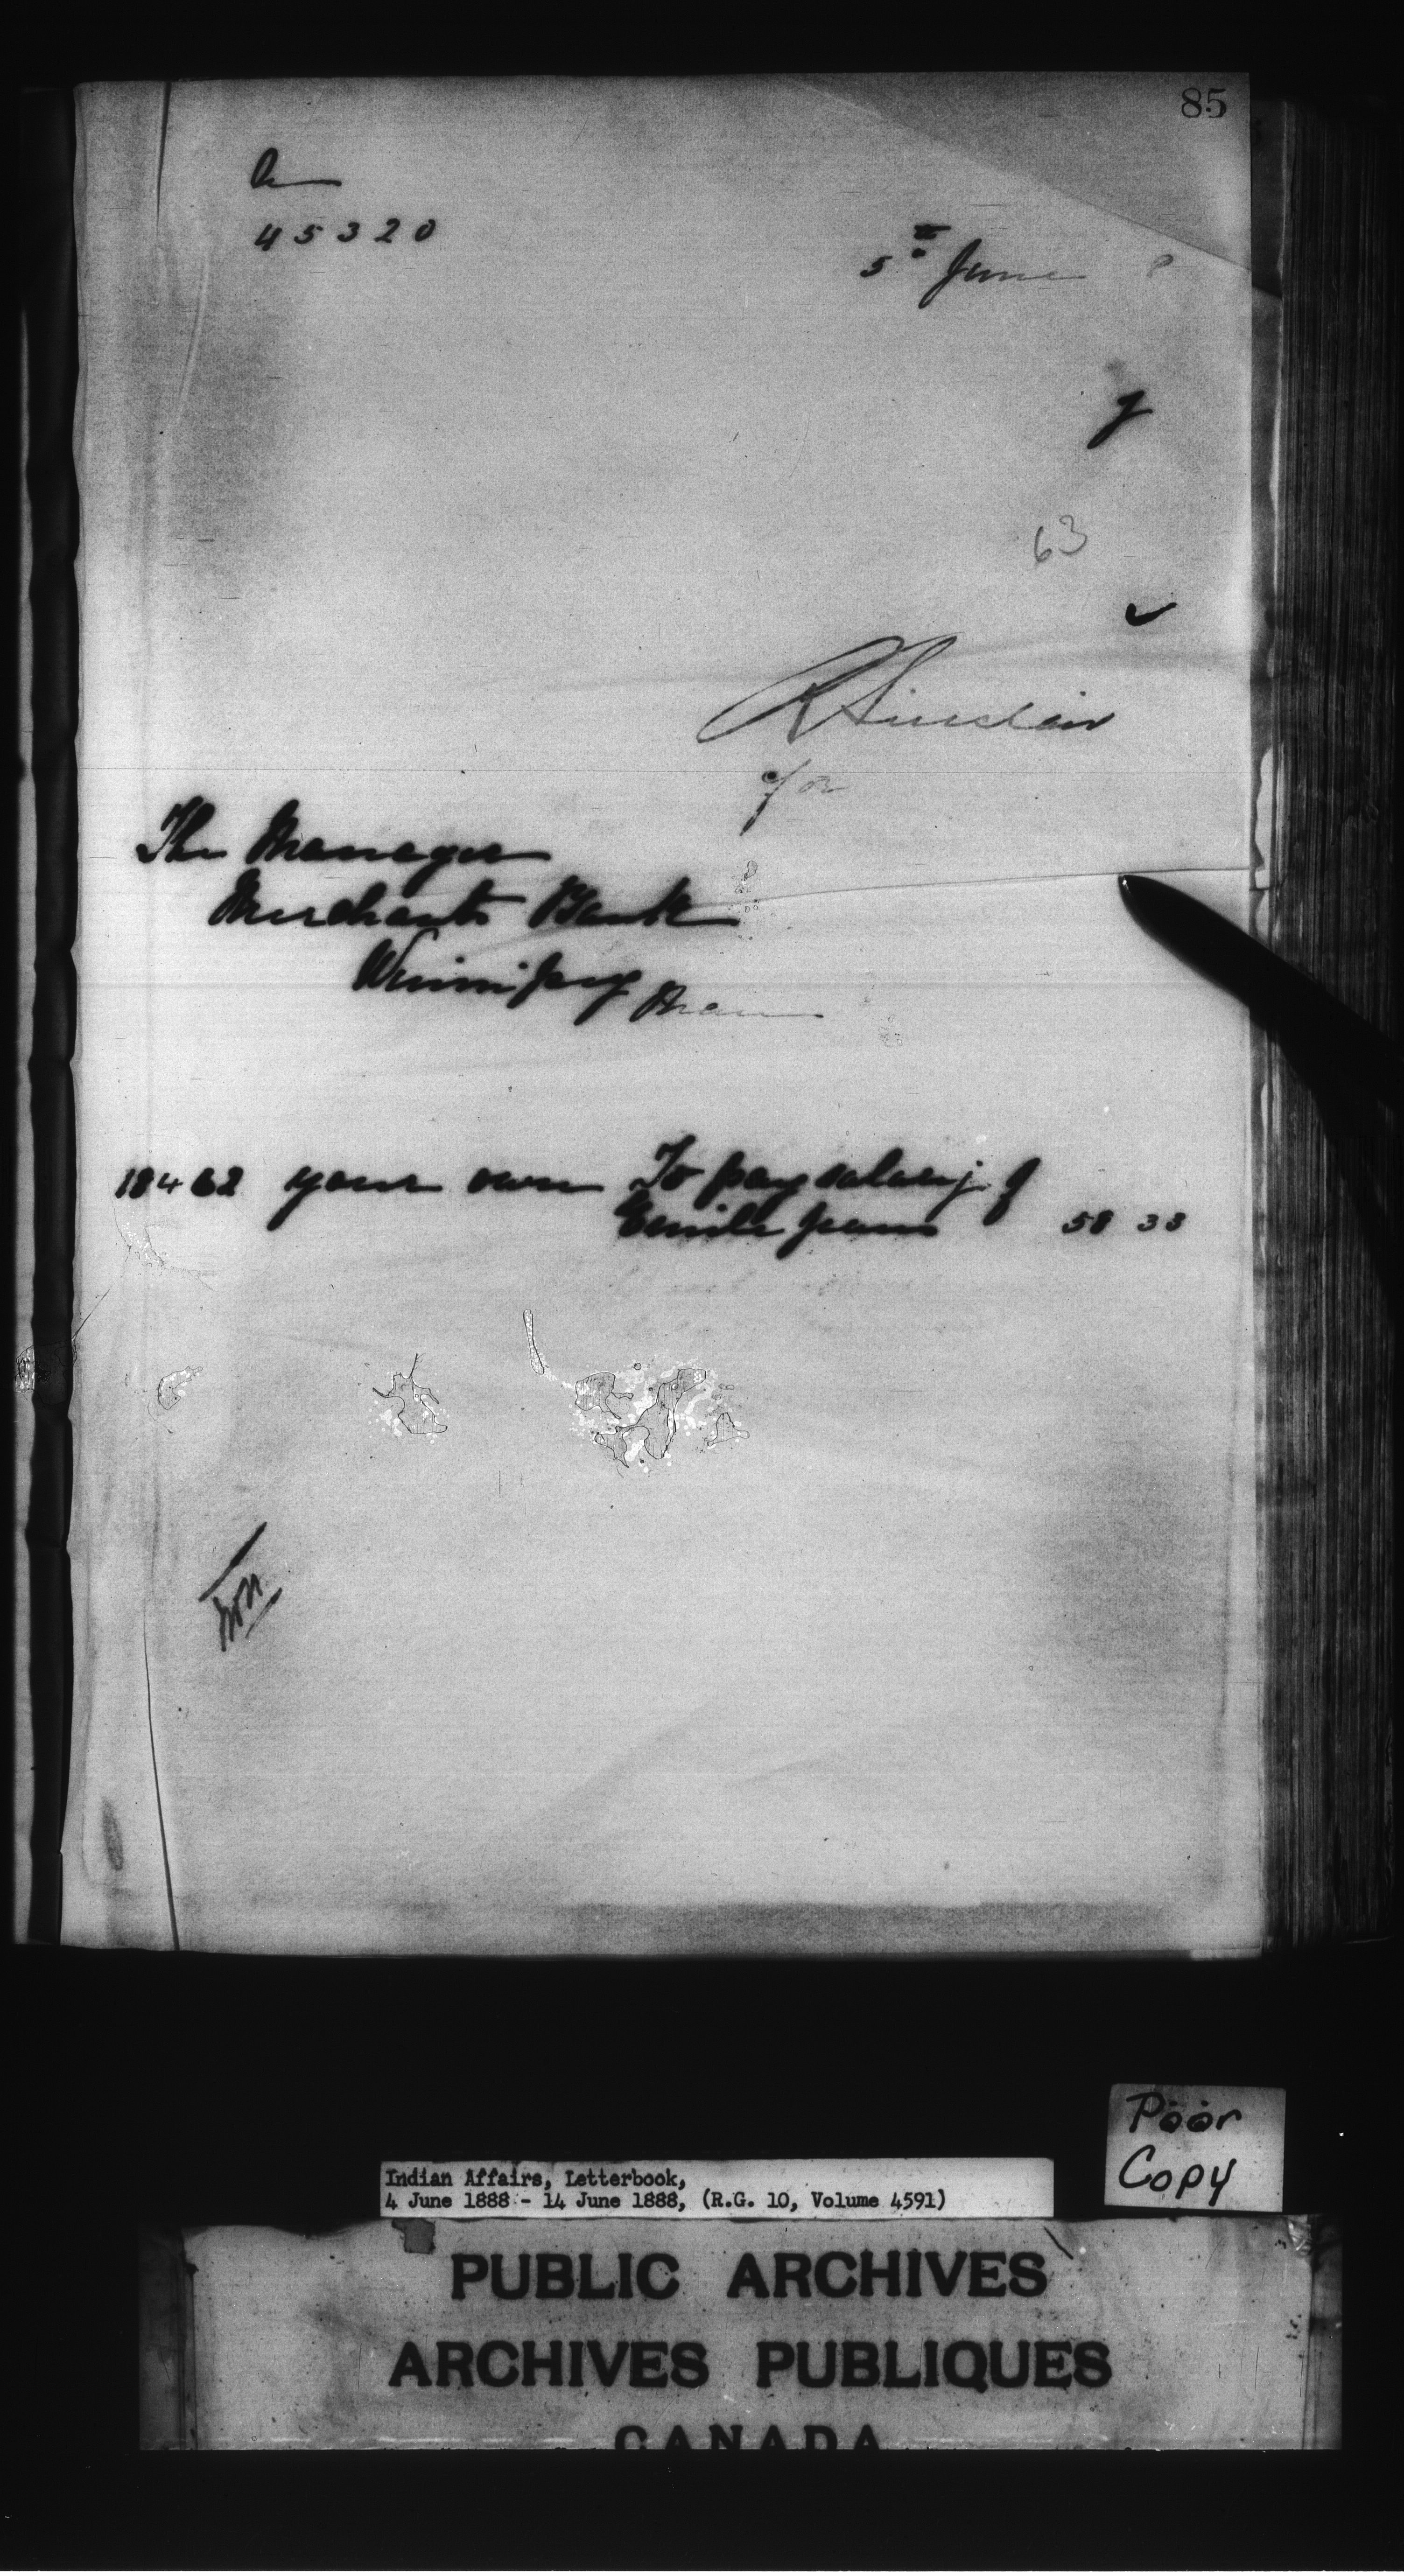 85
45320
5th June 8
y
63
R Sinclair
for
The Manager
Merchants Bank
Winnipeg Man
18462 your own To pay salary of
Emile Jean 58 33
Poor
Copy
Indian Affairs, Letterbook,
4 June 1888 - 14 June 1888, (R.G. 10, Volume 4591)
PUBLIC ARCHIVES
ARCHIVES PUBLIQUES
CANADA